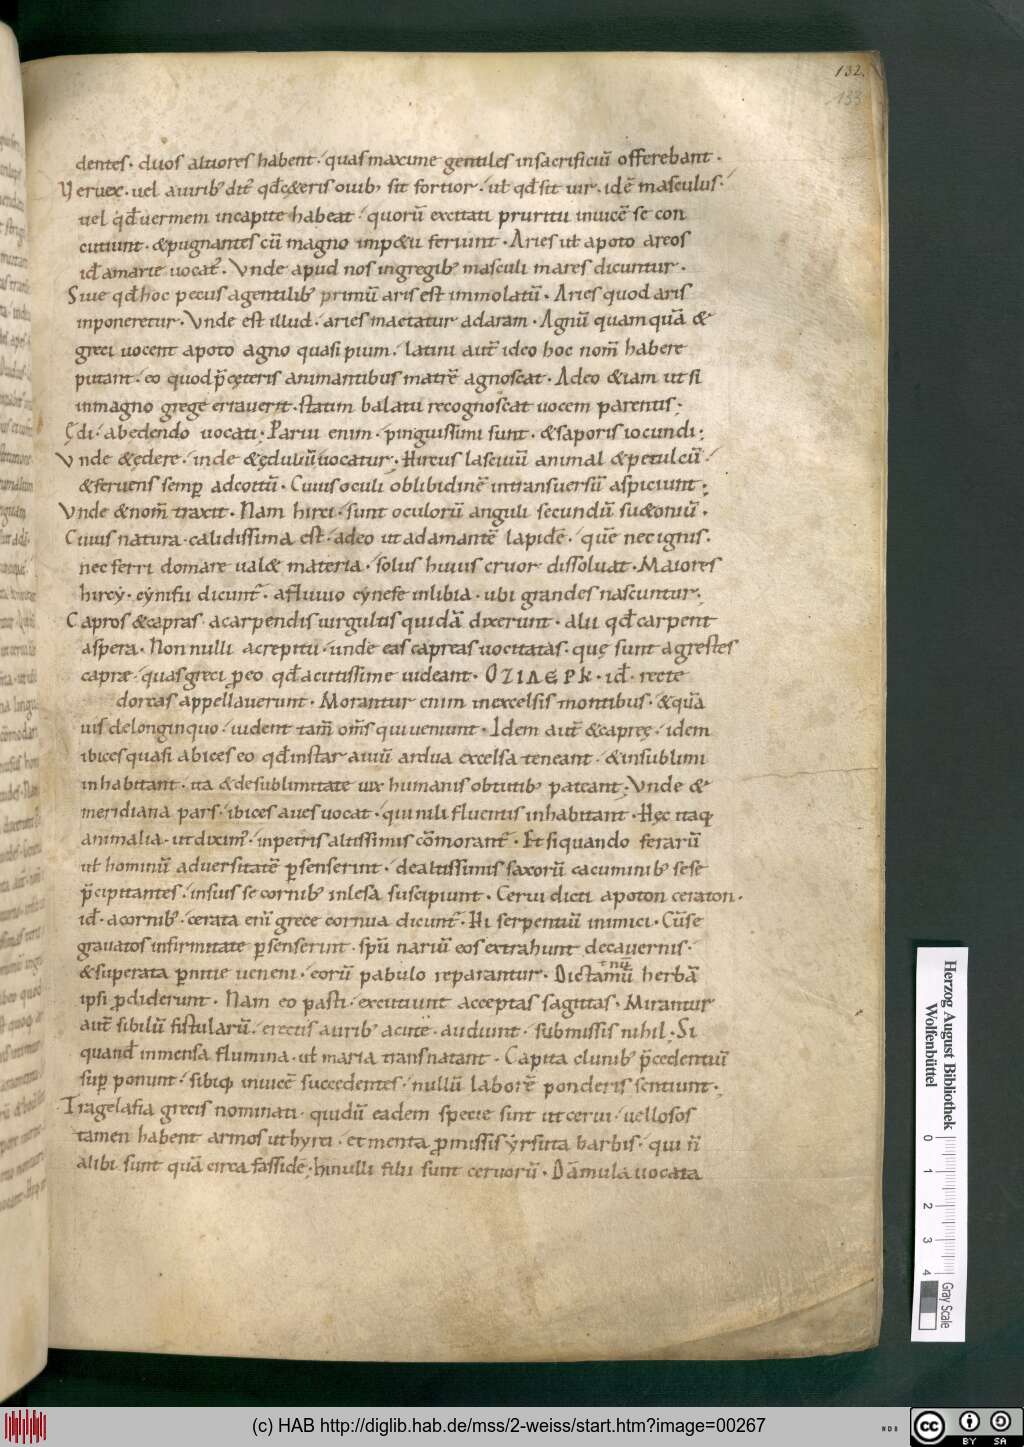 132.
133
dentes · duos altiores habent · quas maxime gentiles insacrificiū offerebant ·
Veruex · uel auirib; dict̄ qđ ceteris ouib; sit fortior · ut̄ qđ sit uir · idē masculus ·
uel qđ uermem incapite habeat · quorū excitati pruritu inuicē se con
cutiunt · & pugnantes cū magno imp&u feriunt · Aries ut̄ apoto areos
id̄ amarte uocat̄ · Vnde apud nos ingregib; masculi mares dicuntur ·
Siue qđ hoc pecus agentilib; primū aris est immolatū · Aries quod aris
inponeretur · Vnde est illud · aries mactatur adaram · Agnū quamquā &
greci uocent apoto agno quasi pium · latini aut̄ ideo hoc nom̄ habere
putant · eo quod p̄ ceteris animantibus matrē agnoscat · Adeo &iam ut si
inmagno grege errauerit · statim balatu recognoscat uocem parentis ;
Ędi · abedendo uocati ; Parui enim · pinguissimi sunt · & saporis iocundi ;
Vnde & ędere · inde & ędulīū uocatur ; Hircus lasciuū animal & petulcū
& feruens semp̄ adcoitū · Cuius oculi oblibidinē intransuersū aspiciunt ;
Vnde & nom̄ traxit · Nam hirci · sunt oculorū anguli secundū su&oniū ·
Cuius natura · calidissima est · adeo ut adamantē lapidē · quē nec ignis ·
nec ferri domare ual& materia · solus huius cruor dissoluat · Maiores
hircy · cynifii dicunt̄ · afluuio cynefe inlibia · ubi grandes nascuntur ;
Capros & capras · acarpendis uirgultis quidā dixerunt · alii qđ carpent
aspera · Non nulli acrepitu · unde eas capreas uocitatas · quę sunt agrestes
capræ · quas greci p̄eo qđ acutissime uideant · OZIΔEPK · id̄ · recte
dorcas appellauerunt · Morantur enim inexcelsis montibus · & quā
uis delonginquo · uident tam̄ om̄s qui ueniunt · Idem aut̄ & caprę · idem
ibices quasi abices eo qđ instar auiū ardua excelsa teneant · & insublimi
inhabitant · ita & desublimitate uix humanis obtutib; pateant ; Vnde &
meridiana pars · ibices aues uocat · qui nili fluentis inhabitant · Hęc itaq;
animalia · ut diximꝰ · inpetris altissimis cōmorant̄ · Et siquando ferarū
ut̄ hominū aduersitatē p̄senserint · dealtissimis saxorū cacuminib; sese
p̄cipitantes · insuis se cornib; inlesa suscipiunt · Cerui dicti apoton ceraton ·
id̄ · acornib; · cerata enī grece cornua dicunt̄ · Hi serpentiū inimici · Cūse
grauatos infirmitate p̄senserint · spū nariū eos extrahunt decauernis ·
& superata p̄nitie ueneni · eorū pabulo reparantur · Dictamū herbā
ipsi p̄diderunt · Nam eo pasti · excutiunt acceptas sagittas · Mirantur
aut̄ sibilū fistularū · erectis aurib; acute · audiunt · submissis nihil ; Si
quand̄ inmensa flumina · ut̄ maria transnatant · Capita clunib; p̄cedentiū
sup̄ ponunt · sibiq; inuicē succedentes · nullū laborē ponderis sentiunt ·
Tragelafia grecis nominati · quidū eadem specie sint ut cerui · uellosos
tamen habent armos ut hyrci · et menta p̄missis yrsuta barbis · qui n̄
alibi sunt quā circa fasside ; hinulli filii sunt ceruorū · Dāmula uocata
Herzog August Bibliothek
Wolfenbüttel
0 1 2 3 4
Gray Scale
(c) HAB http://diglib.hab.de/mss/2-weiss/start.htm?image=00267
cc BY SA